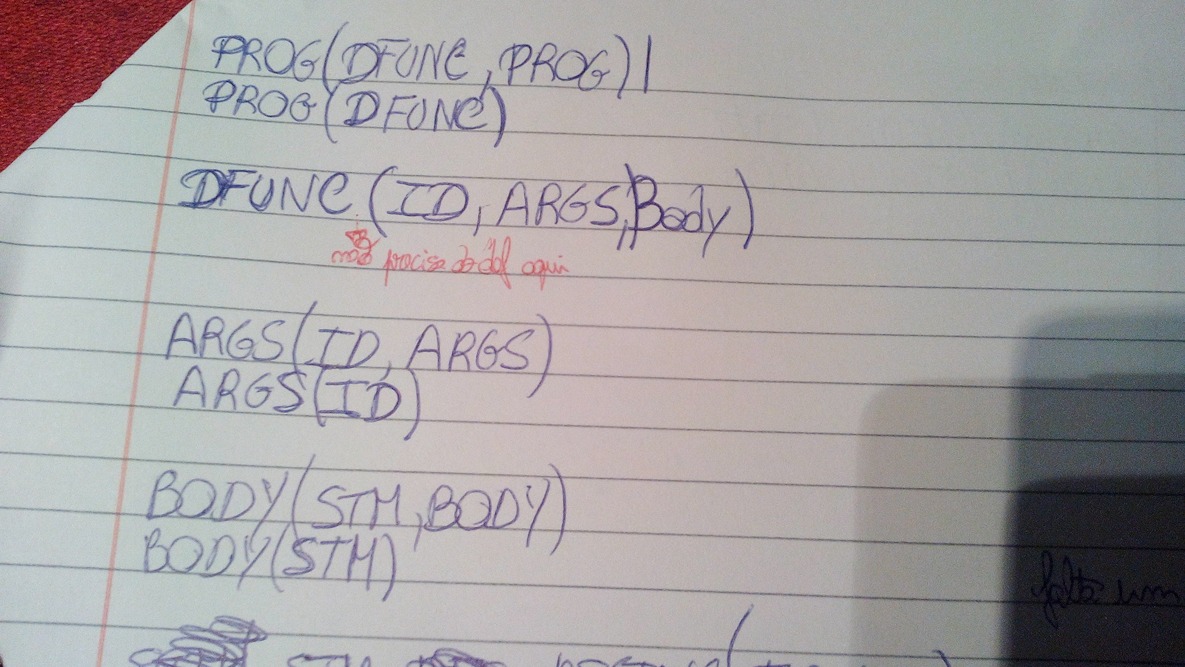 PROG(DFUNC, PROG) |
PROG(DFUNC)
DFUNC(ID, ARGS, Body)
não precisa do def aqui
ARGS(ID, ARGS)
ARGS(ID)
BODY(STM, BODY)
BODY(STM)
falta um